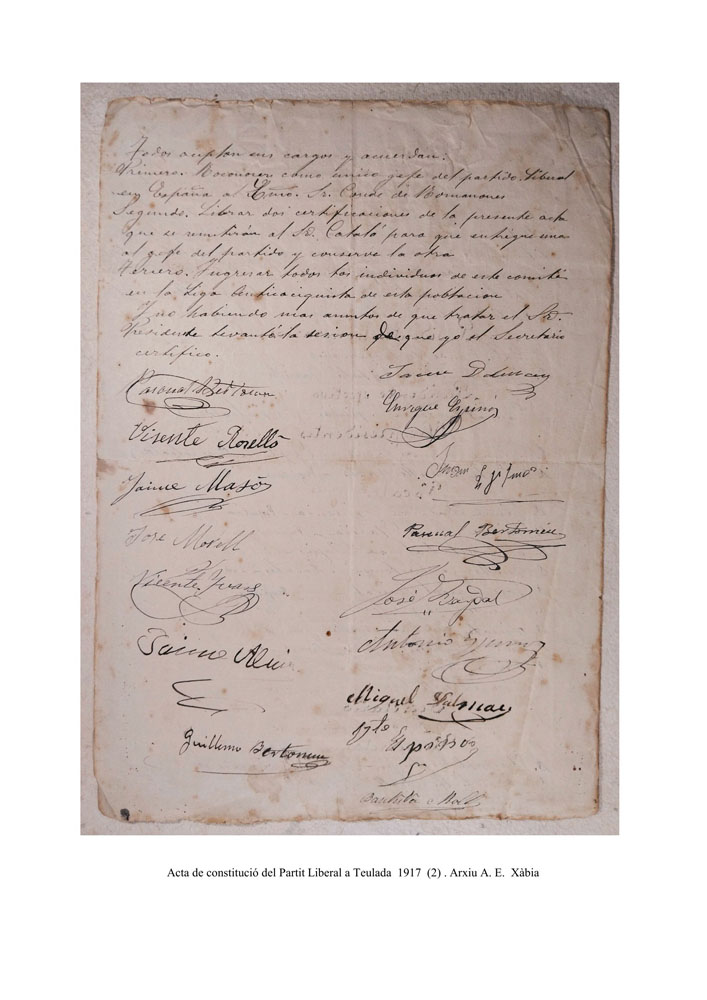 Todos aceptan sus cargos y acuerdan:
Primero. Reconocer como unico gefe del partido liberal
en España al Exmo. Sr. Conde de Romanones
Segundo. Librar dos certificaciones de la presente acta
que se remitirán al Sr. Catalá para que entregue una
al gefe del partido y conserve la otra
Tercero. Ingresar todos los individuos de este comité
en la Liga Anticaciquista de esta poblacion
Y no habiendo mas asuntos de que tratar el Sr.
Presidente levantó la sesion de que yo el Secretario
certifico.
Jaime
Pascual Bertomeu
Enrique Espinos
Visente Roselló
Juan
Jaime Masó
Pascual Bertomeu
Jose Morell
Vicente Ivars
José
Antonio Espinos
Jaime
Miguel
Guillermo Bertomeu
Espinos
Bautista Moll
Acta de constitució del Partit Liberal a Teulada 1917 (2) . Arxiu A. E. Xàbia